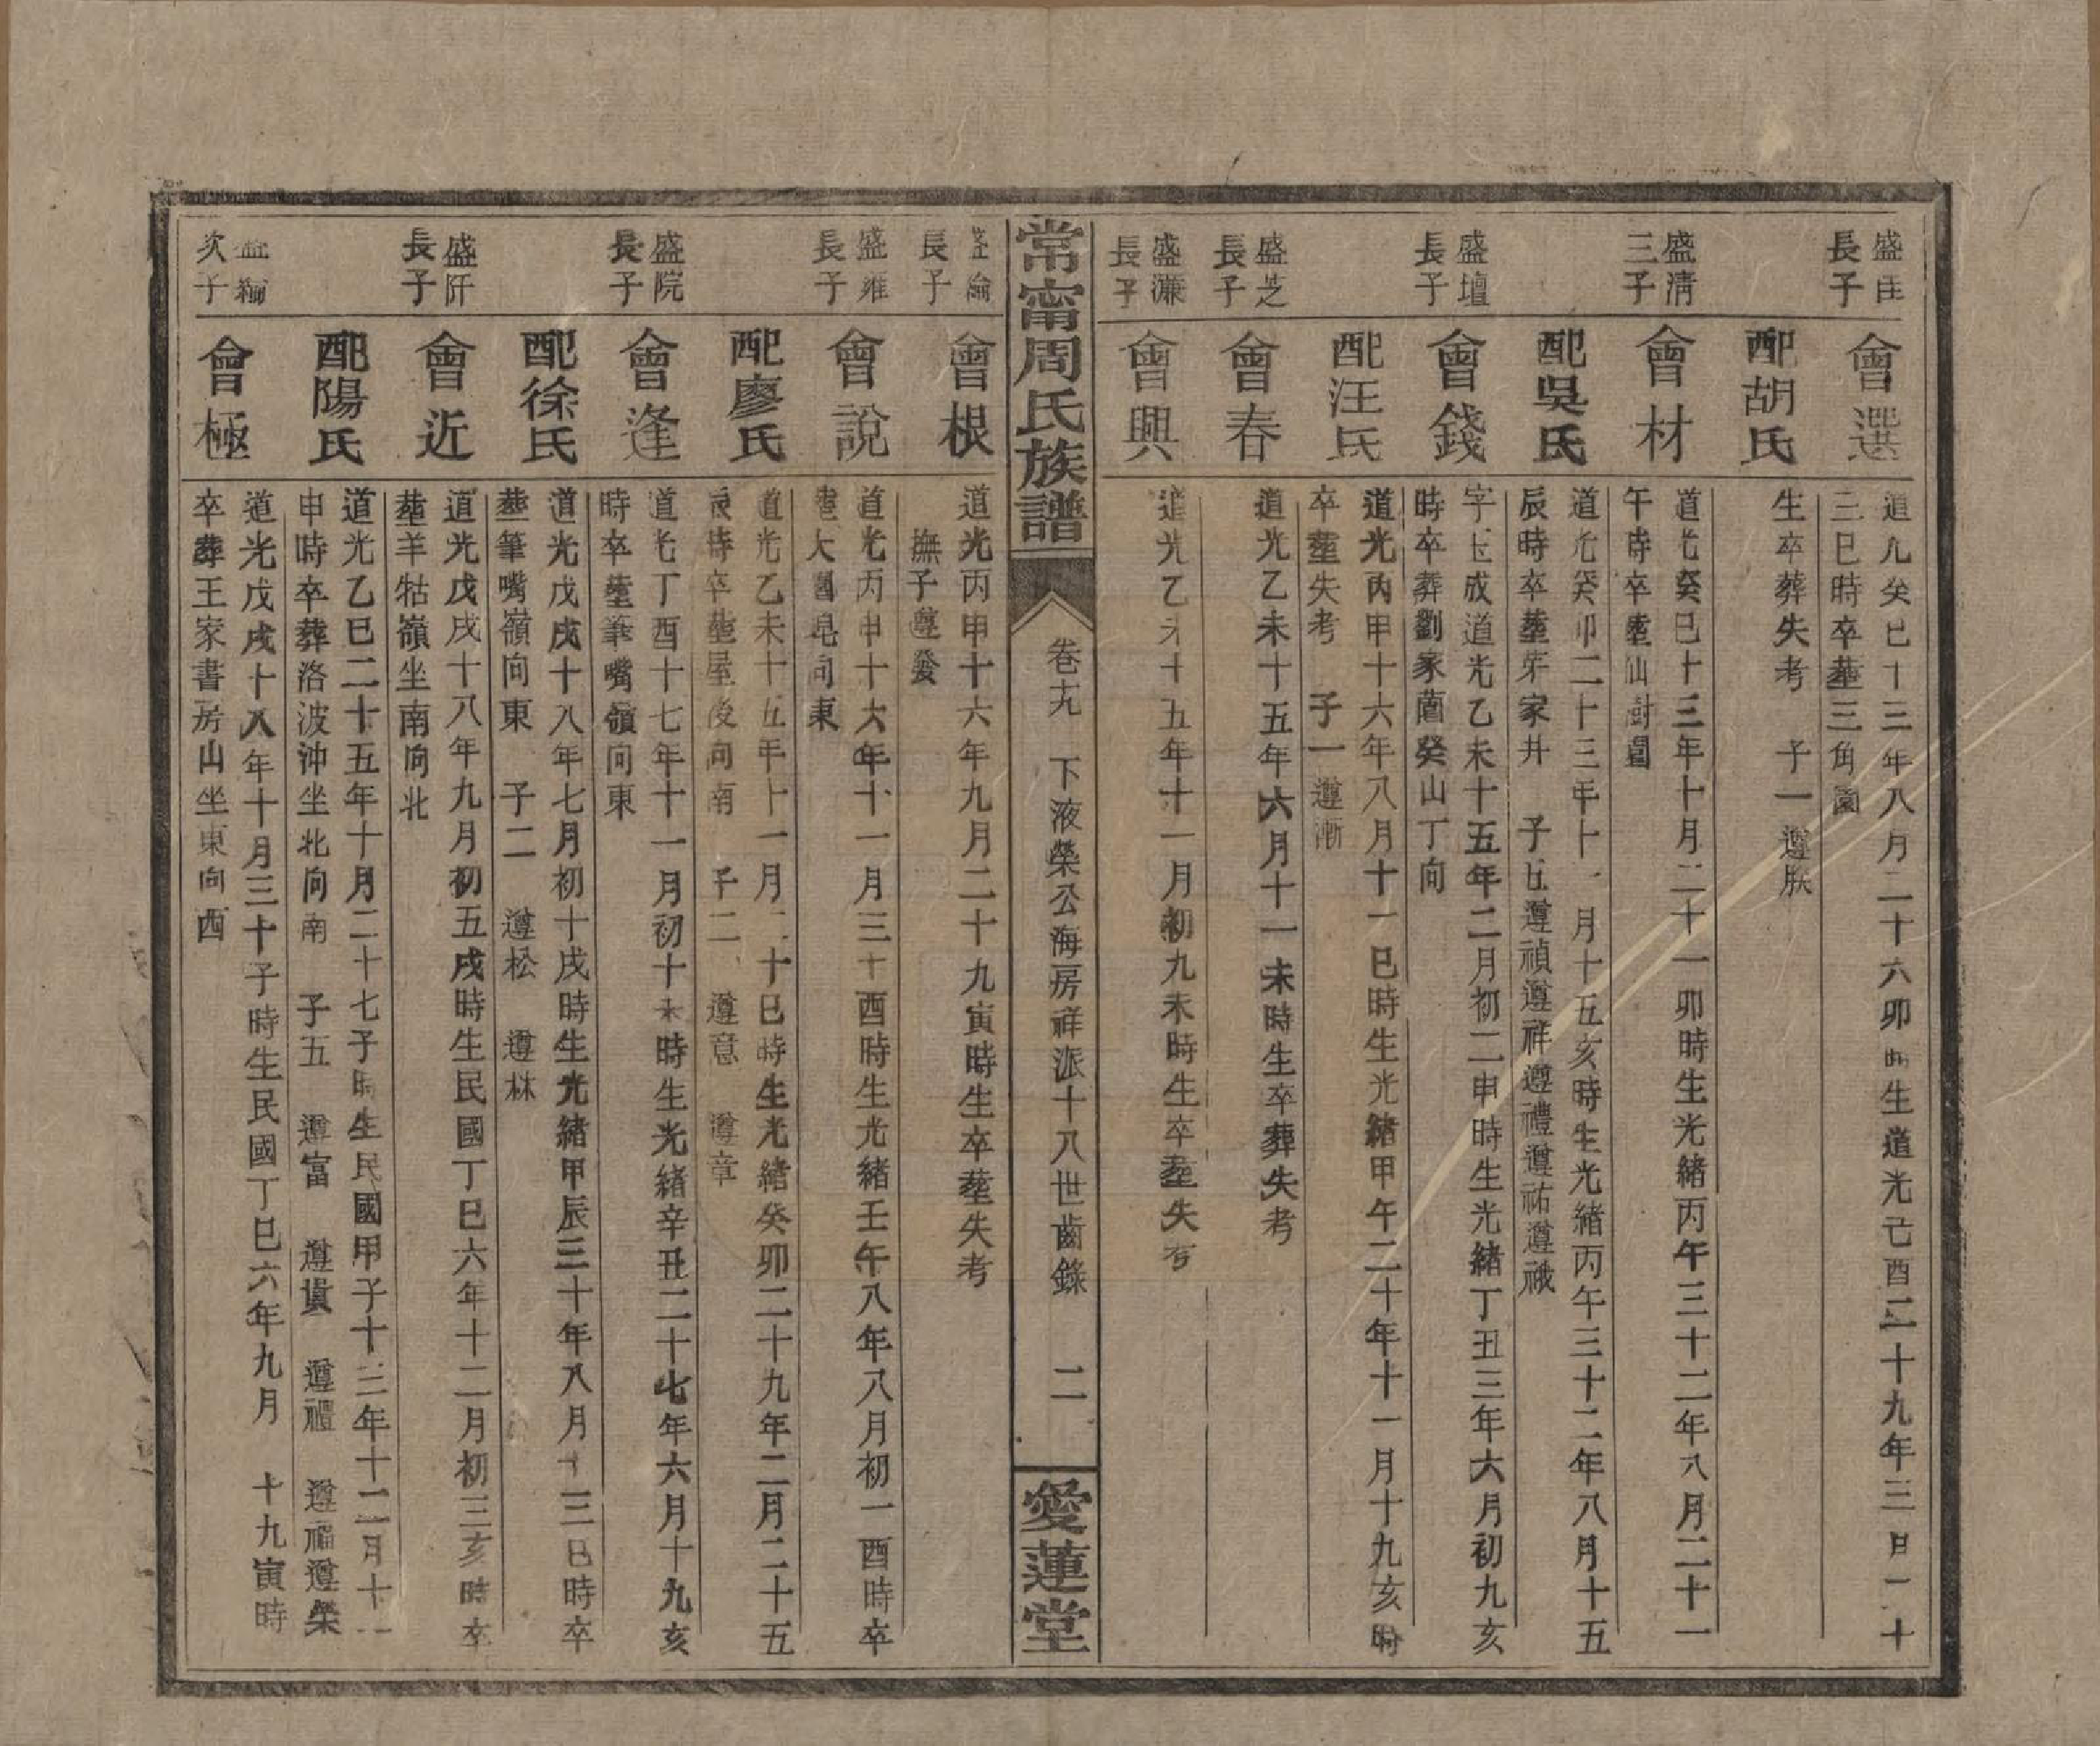 長子
會選
道光癸巳十三年八月二十六卯時生道光己酉二十九年三月二十
三巳時卒塟三角園
配胡氏
生卒葬失考 子一 遵朕
盛清
三子
會材
道光癸巳十三年十月二十一卯時生光緒丙午三十二年八月二十一
午時卒塟仙鼓圓
配吳氏
道光癸卯二十三年十一月十五亥時生光緒丙午三十二年八月十五
辰時卒塟茅家井 子五遵禎遵祥遵禮遵祐遵禩
盛壇
長子
會錢
字玉成道光乙未十五年二月初二申時生光緒丁丑三年六月初九亥
時卒葬劉家薗癸山丁向
配汪氏
道光丙申十六年八月十一巳時生光緒甲午二十年十一月十九亥時
卒塟失考 子一遵漸
盛芝
長子
會春
道光乙未十五年六月十一未時生卒葬失考
盛濂
長子
會興
道光乙未十五年十一月初九未時生卒塟失考
常甯周氏族譜
卷十九 下液榮公海房祥派十八世齒錄 二
愛蓮堂
盛渝
長子
會根
道光丙申十六年九月二十九寅時生卒塟失考
撫子遵發
盛維
長子
會說
道光丙申十六年十一月三十酉時生光緒壬午八年八月初一酉時卒
塟大圓皂向東
配廖氏
道光乙未十五年十一月二十巳時生光緒癸卯二十九年二月二十五
辰時卒塟屋後向南 子二 遵意 遵章
盛院
長子
會逢
道光丁酉十七年十一月初十未時生光緒辛丑二十七年六月十九亥
時卒塟筆嘴嶺向東
配徐氏
道光戊戌十八年七月初十戌時生光緒甲辰三十年八月十三巳時卒
塟筆嘴嶺向東 子二 遵松 遵林
盛阡
長子
會近
道光戊戌十八年九月初五戌時生民國丁巳六年十二月初三亥時卒
塟羊牯嶺坐南向北
配陽氏
道光乙巳二十五年十月二十七子時生民國甲子十三年十二月十一
申時卒葬洛波沖坐北向南 子五 遵富 遵貴 遵禮 遵福遵榮
次子
會極
道光戊戌十八年十月三十子時生民國丁巳六年九月 十九寅時
卒葬王家書房山坐東向西